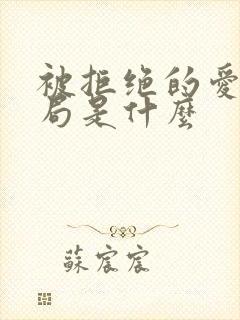 被拒绝的愛
局是什麼
蘇宸宸